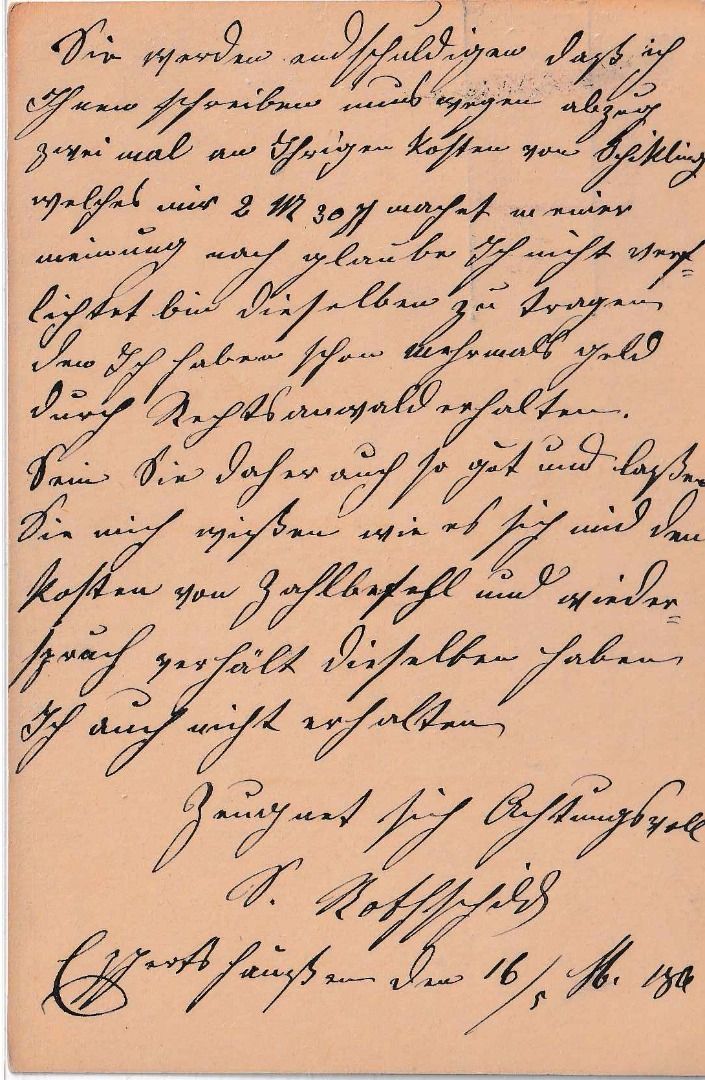 Sie werden endschuldigen daß ich
Ihnen schreiben mus wegen abzug
zwei mal an Ihrigen Kosten von Schikling
welches mir 2 M 30 ₰ machet meiner
meinung nach glaube Ich nicht verf=
lichtet bin dieselben zu tragen
den Ich haben schon mehrmals geld
durch Rechtsanwald erhalten.
Sein Sie daher auch so gut und laßen
Sie mich wießen wie es sich mid den
Kosten von Zahlbefehl und wieder=
spruch verhält dieselben haben
Ich auch nicht erhalten
Zeugnet sich Achtungsvoll
S. Rothschild
Eppertshaußen den 16/5